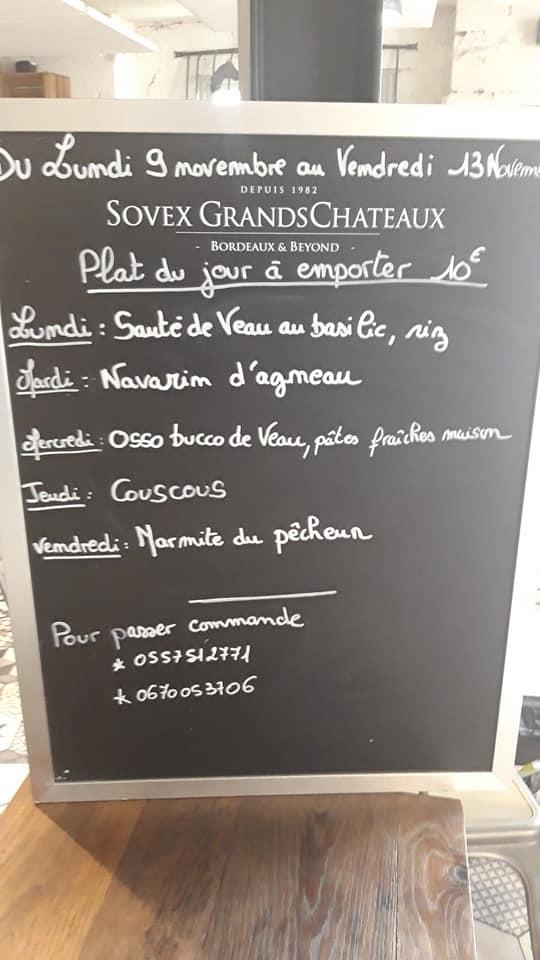 Du Lundi 9 novembre au Vendredi 13 Novem
DEPUIS 1982
SOVEX GRANDSCHATEAUX
- BORDEAUX & BEYOND -
Plat du jour à emporter 10€
Lundi : Sauté de Veau au basilic, riz
Mardi : Navarin d'agneau
Mercredi : Osso bucco de Veau, pâtes fraîches maison
Jeudi : Couscous
Vendredi : Marmite du pêcheur
Pour passer commande
* 0557512771
* 0670053706